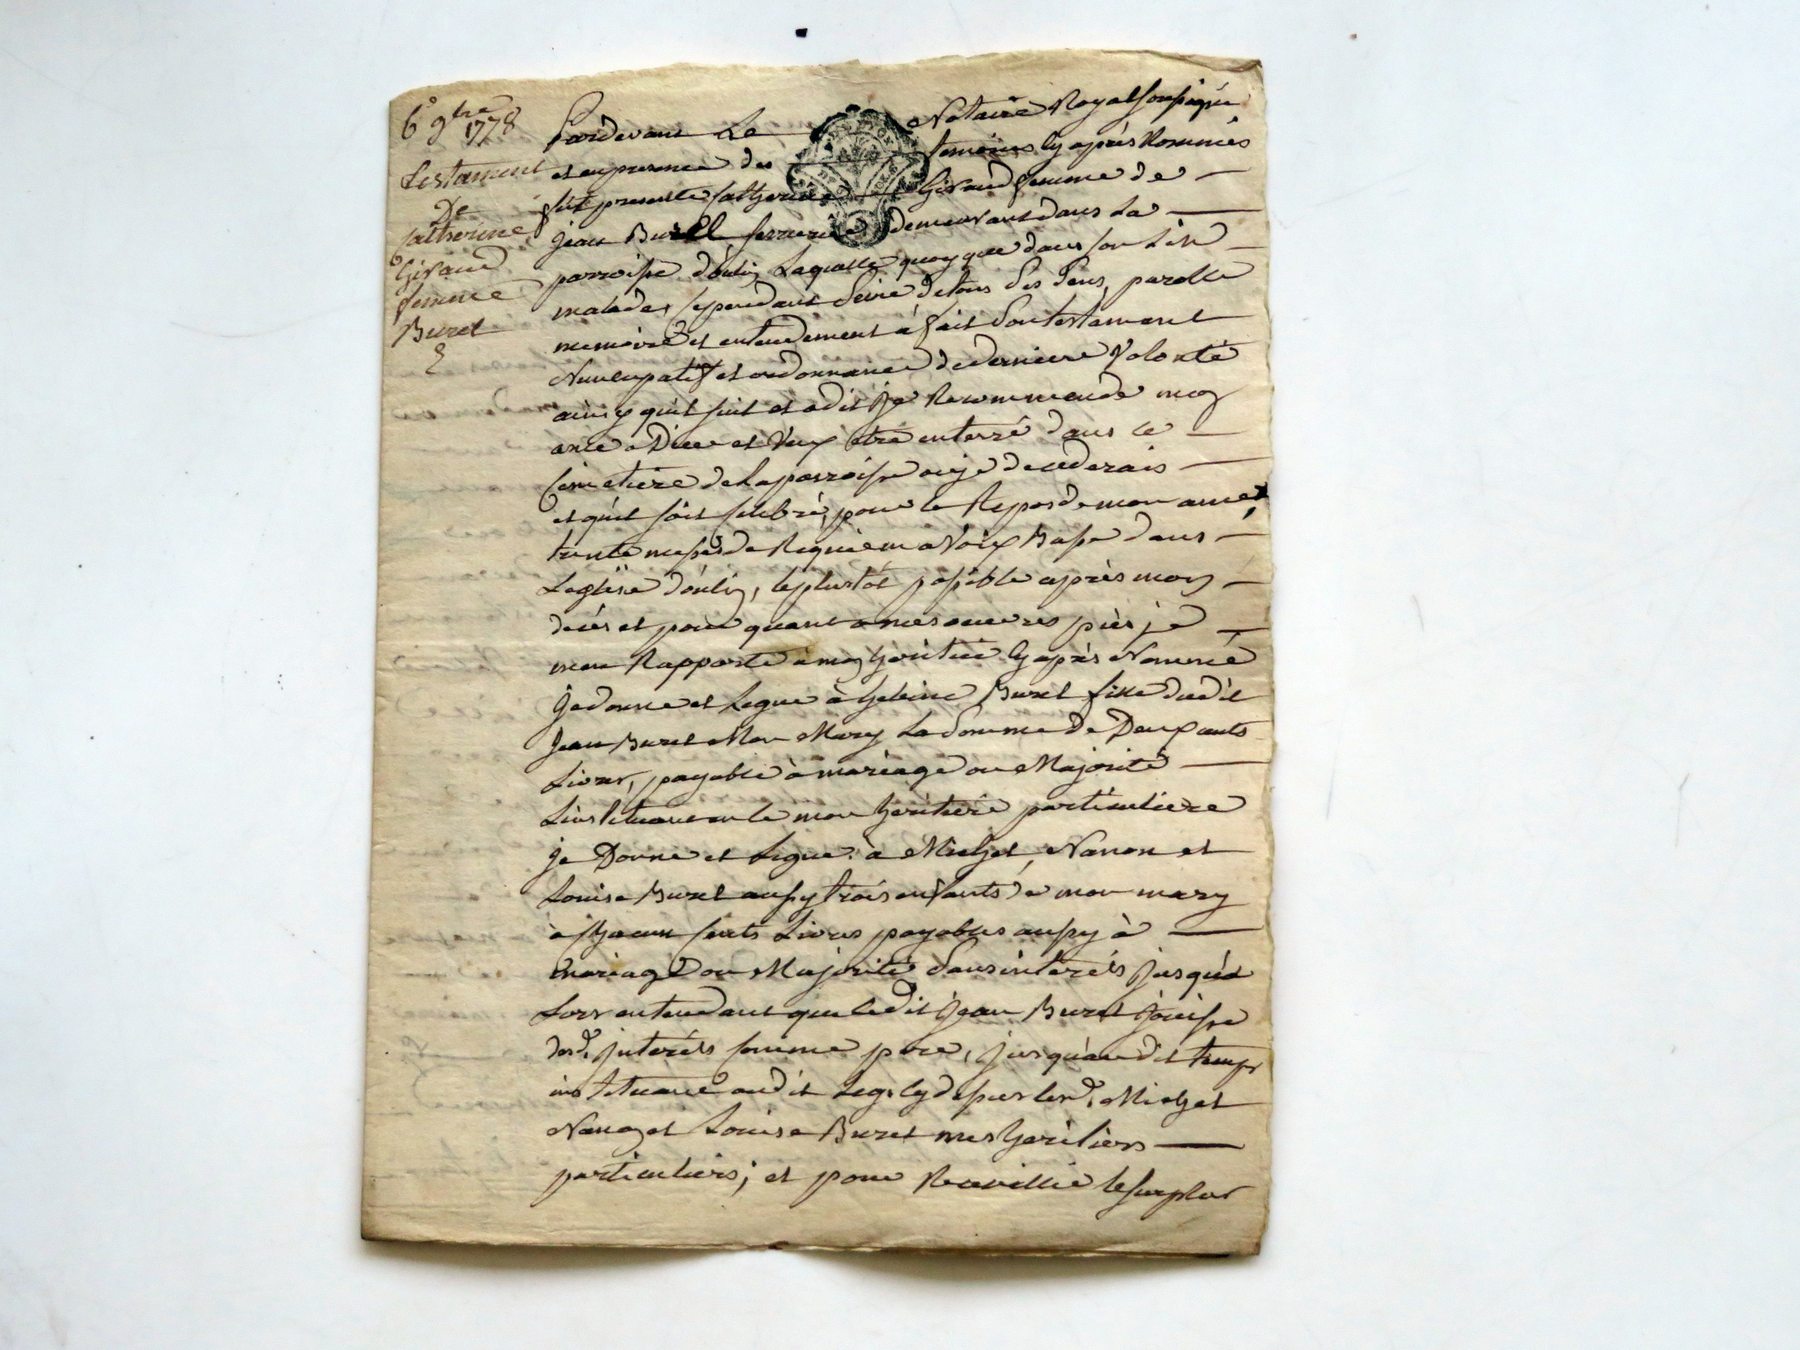 6e 9bre 1778
Testament
De
Catherine
Giraud
femme
Buret
Pardevant Le Notaire Royal soussigné
et en presence des temoins cy après Nommés
fut presente Catherine Giraud femme de
Jean Buret demeurant dans La
parroisse d'oulin Laquelle quoy que dans son Lit
malade, cependant saine de tous ses sens, parolle
memoire et entendement à fait son testament
Nuncupatif et ordonnance de derniere Volonté
ainsy quil suit et a dit je Recommande mon
ame a Dieu et veux etre enterré dans le
Cimetiere de La parroisse ou je decederais
et qu'il soit celebré, pour le Repos de mon ame,
trente messes de Requiem a Voix Basse dans
L'eglise d'oulin, le plustôt possible après mon
decès et pour quant a mes oeuvres pies je
men Rapporte à mon heritier cy après Nommé
Je donne et Legue à Buret fille dudit
Jean Buret Mon Mary La Somme de Deux cents
Livres, payable à mariage ou Majorité
L'instituant en ce mon heritiere particuliere
Je Donne et Legue à Michel, Nanon et
Louise Buret aussy trois enfants de mon mary
à chacun cents Livres payables aussy à
mariage ou Majorité Sans intérêts jusqu'à
Lors entendant que ledit Jean Buret jouisse
desd. interêts comme pere, jusqu'audit temps
instituant audit Legs cy dessus lesd. Michel
Nanon et Louise Buret mes heritiers
particuliers; et pour Recueillir le surplus